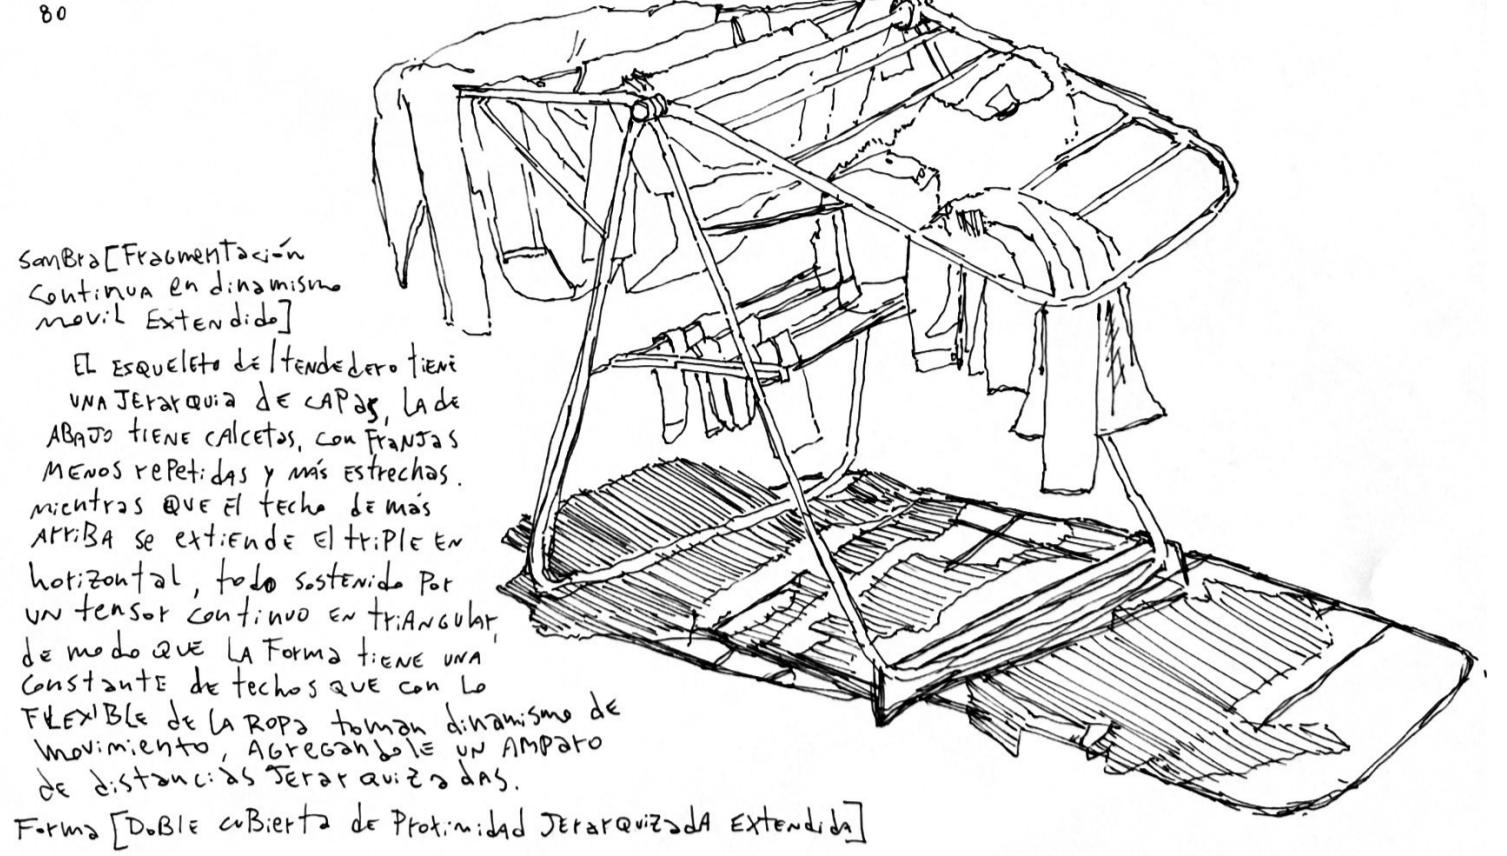 80
Sombra [Fragmentación
continua en dinamismo
movil Extendido]
EL ESQUELETO del tendedero tiene
una Jerarquia de capas, la de
ABAJO tiene calcetas, con franjas
menos repetidas y más estrechas.
mientras que el techo de más
arriba se extiende el triple en
horizontal, todo sostenido por
un tensor continuo en triangular,
de modo que la forma tiene una
constante de techos que con lo
FLEXIBLE de la ropa toman dinamismo de
movimiento, agregandole un amparo
de distancias Jerarquizadas.
Forma [Doble cubierta de Proximidad Jerarquizada Extendida]